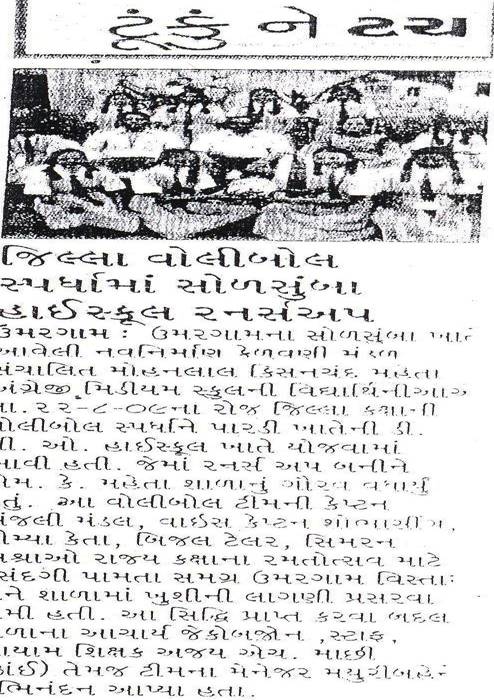 ટૂંકું ને ટચ
જિલ્લા વોલીબોલ
સ્પર્ધામાં સોળસુંબા
હાઈસ્કૂલ રનર્સઅપ
ઉમરગામ : ઉમરગામના સોળસુંબા ખાતે
આવેલી નવનિર્માણ કેળવણી મંડળ
સંચાલિત મોહનલાલ કિસનચંદ મહેતા
અંગ્રેજી મિડીયમ સ્કુલની વિદ્યાર્થિનીઓએ
તા. ૨૨-૮-૦૯ના રોજ જિલ્લા કક્ષાની
વોલીબોલ સ્પર્ધાને પારડી ખાતેની ડી.
સી. ઓ. હાઈસ્કૂલ ખાતે યોજવામાં
આવી હતી. જેમાં રનર્સ અપ બનીને
એમ. કે. મહેતા શાળાનું ગૌરવ વધાર્યું
હતું. આ વોલીબોલ ટીમની કેપ્ટન
મંડલ, વાઈસ કેપ્ટન શોભાસીંગ,
કેતા, બિજલ ટેલર, સિમરન
મિશ્રાઓ રાજ્ય કક્ષાના રમતોત્સવ માટે
પસંદગી પામતા સમગ્ર ઉમરગામ વિસ્તાર
અને શાળામાં ખુશીની લાગણી પ્રસરવા
પામી હતી. આ સિદ્ધિ પ્રાપ્ત કરવા બદલ
શાળાના આચાર્ય જેકોબજોન ,સ્ટાફ,
વ્યાયામ શિક્ષક અજય એચ. માછી
તેમજ ટીમના મેનેજર મયુરીબહેને
અભિનંદન આપ્યા હતા.